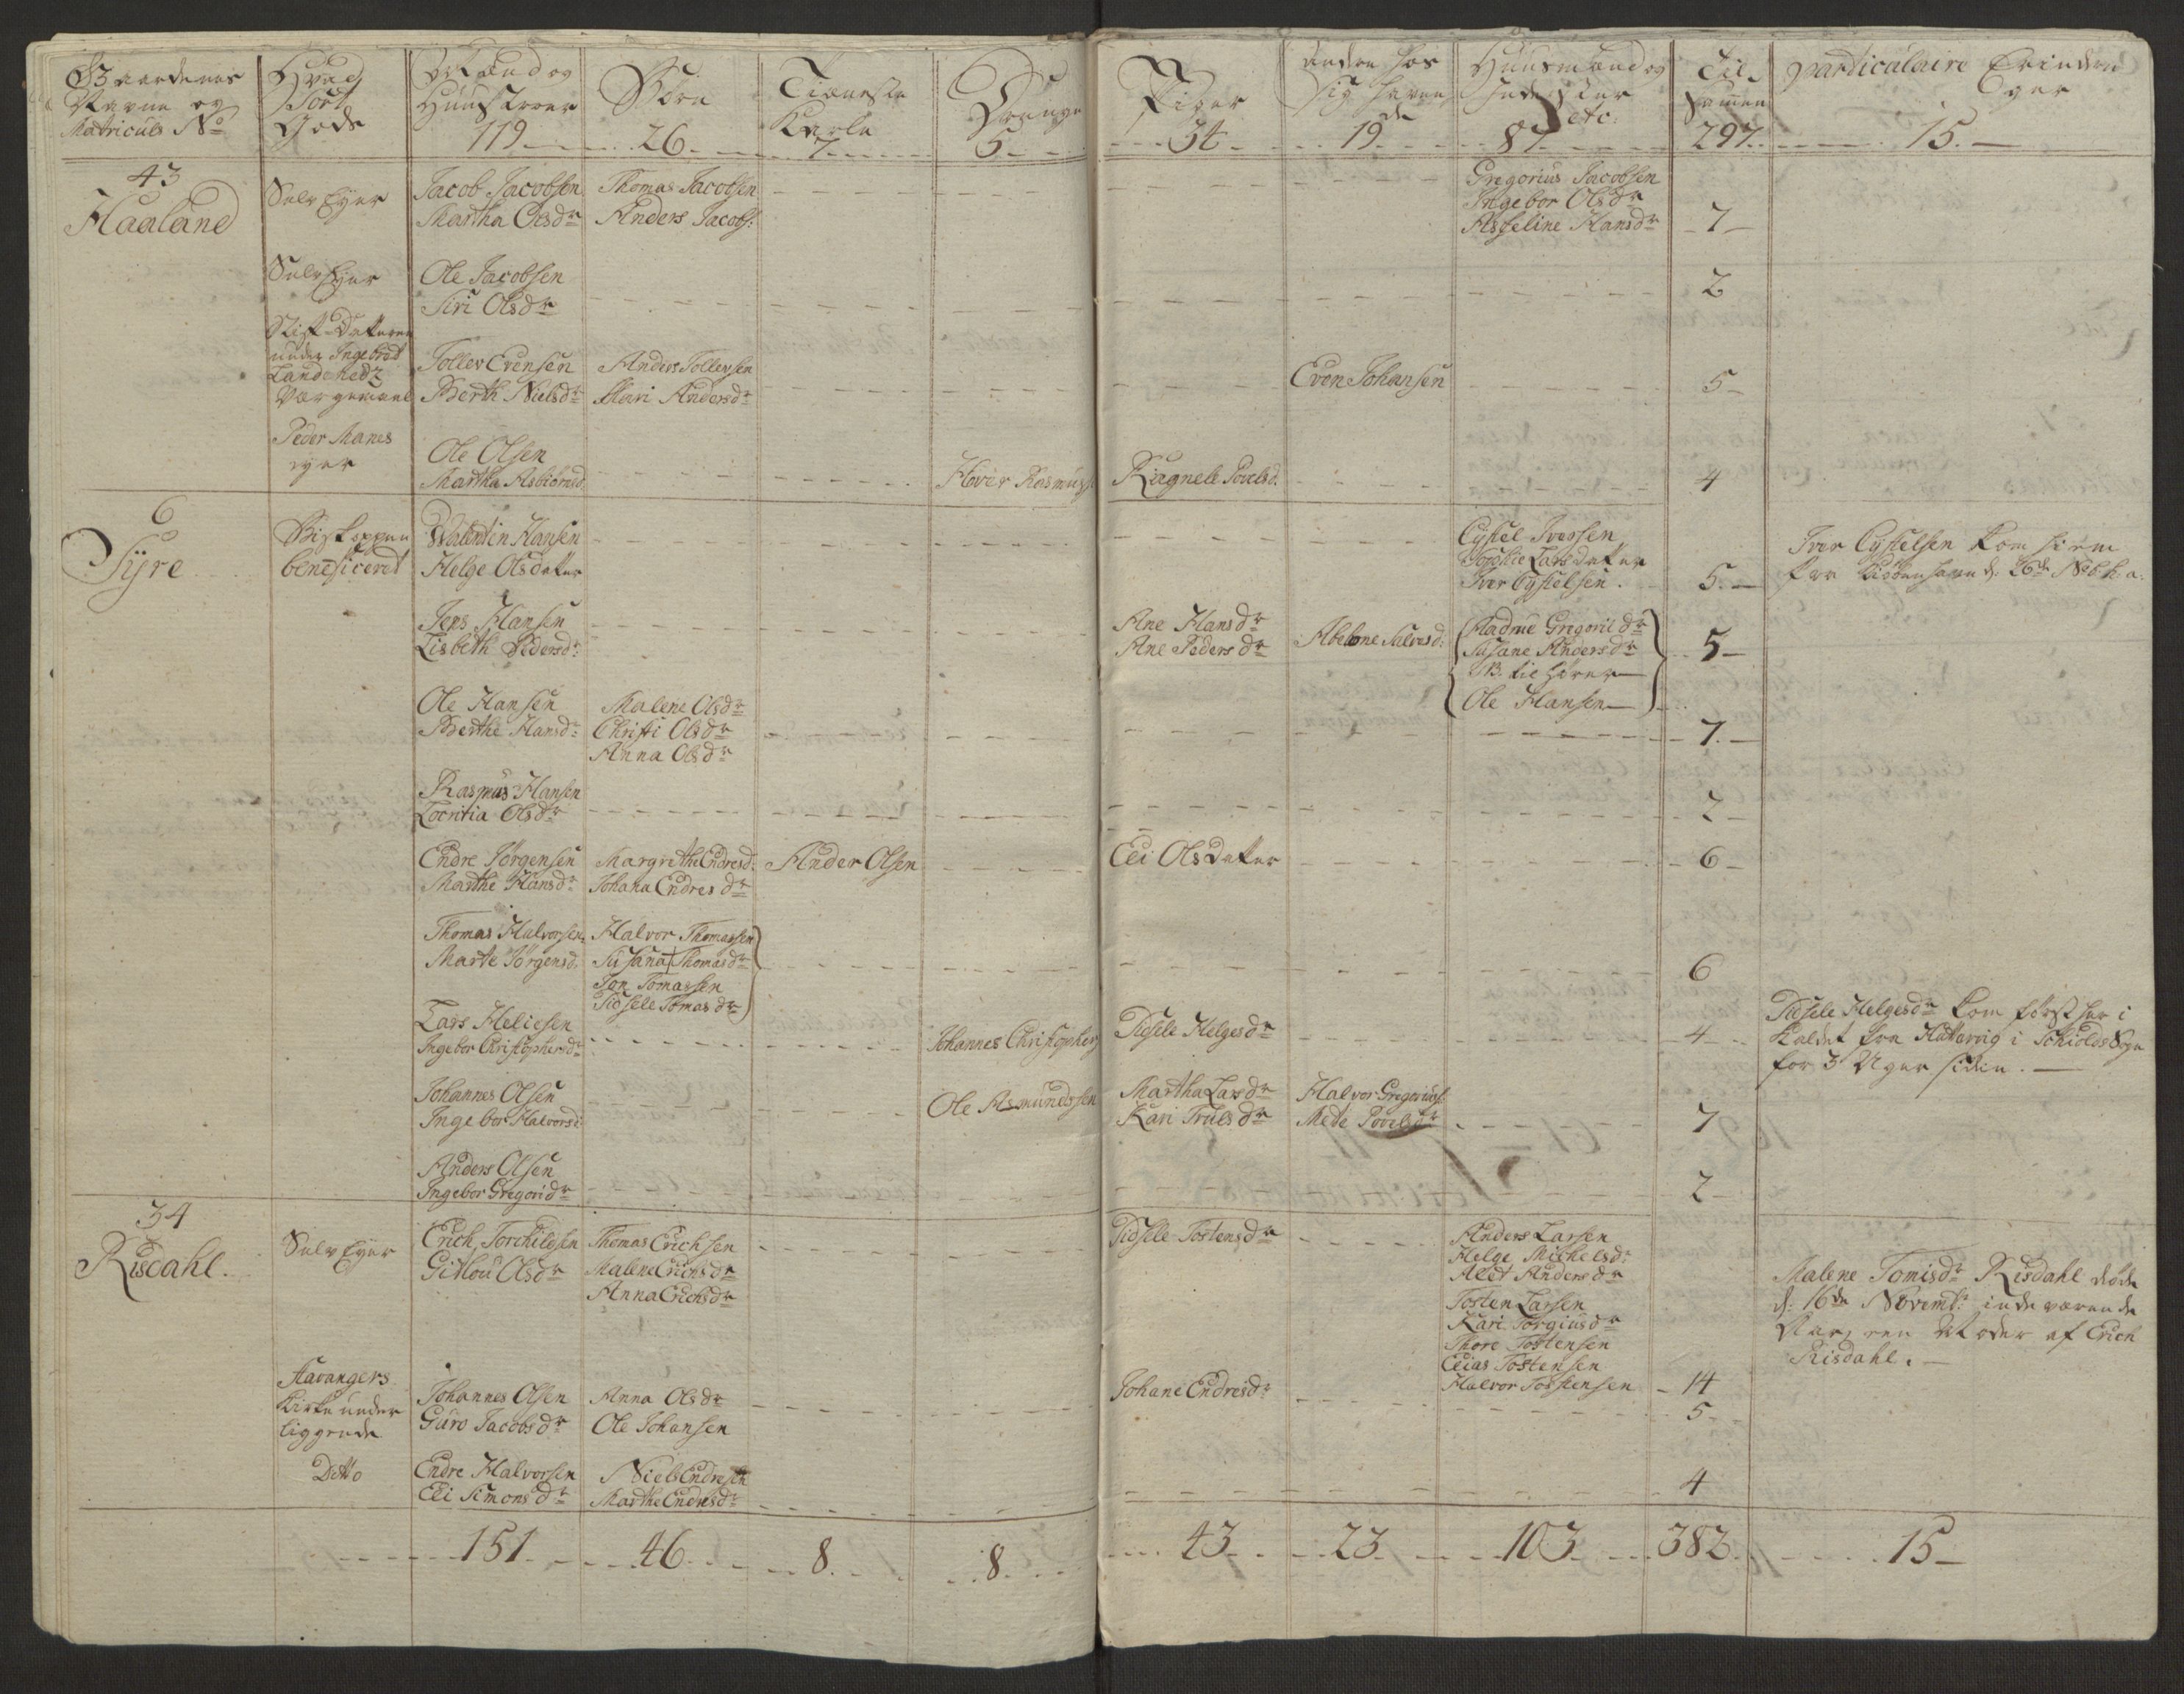 Gaardenes
Navne og
Matriculs No
Hvad
Sort
Gods
Mænd og
Huustroer
119
Børn
26
Tieneste
Karle
7
Drenge
5
Piger
34
Andre hos
sig haven
de
19
Huusmænd og
Inderster
etc:
87
Til
Sammen
297
particulaire Erindrin
ger
15
43
Haaland
Selv Eyer
Jacob Jacobsen
Martha Olsdr
Thomas Jacobsen
Anders Jacobs:
Gregorius Jacobsen
Ingebor Olsdr
Asseline Hansdr
7
Selv Eyer
Ole Jacobsen
Siri Olsdr
2
under Ingebret
Tollev Evensen
Berth Nielsdr
Anders Tollevsen
Mari Andersdr
Even Johansen
5
Peder Manes
eyer
Ole Olsen
Martha Asbiørnsd.
Hover Rasmuss
Ragnele Povelsd.
4
6
Tyre
Biskoppen
beneficeret
Walentin Hansen
Helge Olsdatter
Eystel Iversen
Torshie Larsdatter
Iver Eystelsen
5
Iver Eystelsen kom hiem
fra Kiøbenhavn d. 26de Nob. h. a.
Jens Hansen
Lisbeth Pedersdr
Ane Hansdr
Ane Pedersdr
Abelone Salvesd:
Madme Gregorii dr
Susane Andersdr
NB. tilhører
Ole Hansen
5
Ole Hansen
Berthe Hansdr
Malene Olsdr
Christi Olsdr
Anna Olsdr
7
Rasmus Hansen
Locritia Olsdr
2
Endre Jørgensen
Marthe Hansdr
Margrethe Endresd.
Johana Endresdr
Ander Olsen
Eli Olsdatter
6
Thomas Halvorsen
Marte Jørgensd.
Halvor Thomassen
Susana Thomasdr
Jon Tomassen
Tidsele Tomasdr
6
Lars Heliesen
Ingebor Christophersdr
Johannes Christophers
Tidsele Helgesdr
4
Tidsele Helgesdr kom først her i
Kaldet fra Hattevig i Schiolds Sogn
for 3 Uger siden.
Johannes Olsen
Ingebor Halvorsd:
Ole Asmundssen
Martha Larsdr
Kari Trulsdr
Halvor Gregorius:
Mede Povelsdr
7
Anders Olsen
Ingebor Gregoridr
2
34
Risdahl.
Selv Eyer
Erich Torchildsen
Gitlou Olsdr
Thomas Erichsen
Malene Erichsdr
Anna Erichsdr
Tidsele Tostensdr
Anders Larsen
Helge Michelsdr
Alet Andersdr
Tosten Larsen
Kari Torgiusdr
Thore Tostensen
Elias Tostensen
Halvor Tostensen
14
Malene Tomisdr Risdahl døde
d: 16de Novembr: indeværende
Aar, en Moder af Erich
Risdahl.
Stavangers
Kirke under
liggende
Johannes Olsen
Guro Jacobsdr
Anna Olsdr
Ole Johansen
Johane Endresdr
5
Ditto
Endre Halvorsen
Eli Simonsdr
Niels Endresen
Marthe Endresdr
4
151
46
8
8
43
23
103
382
15